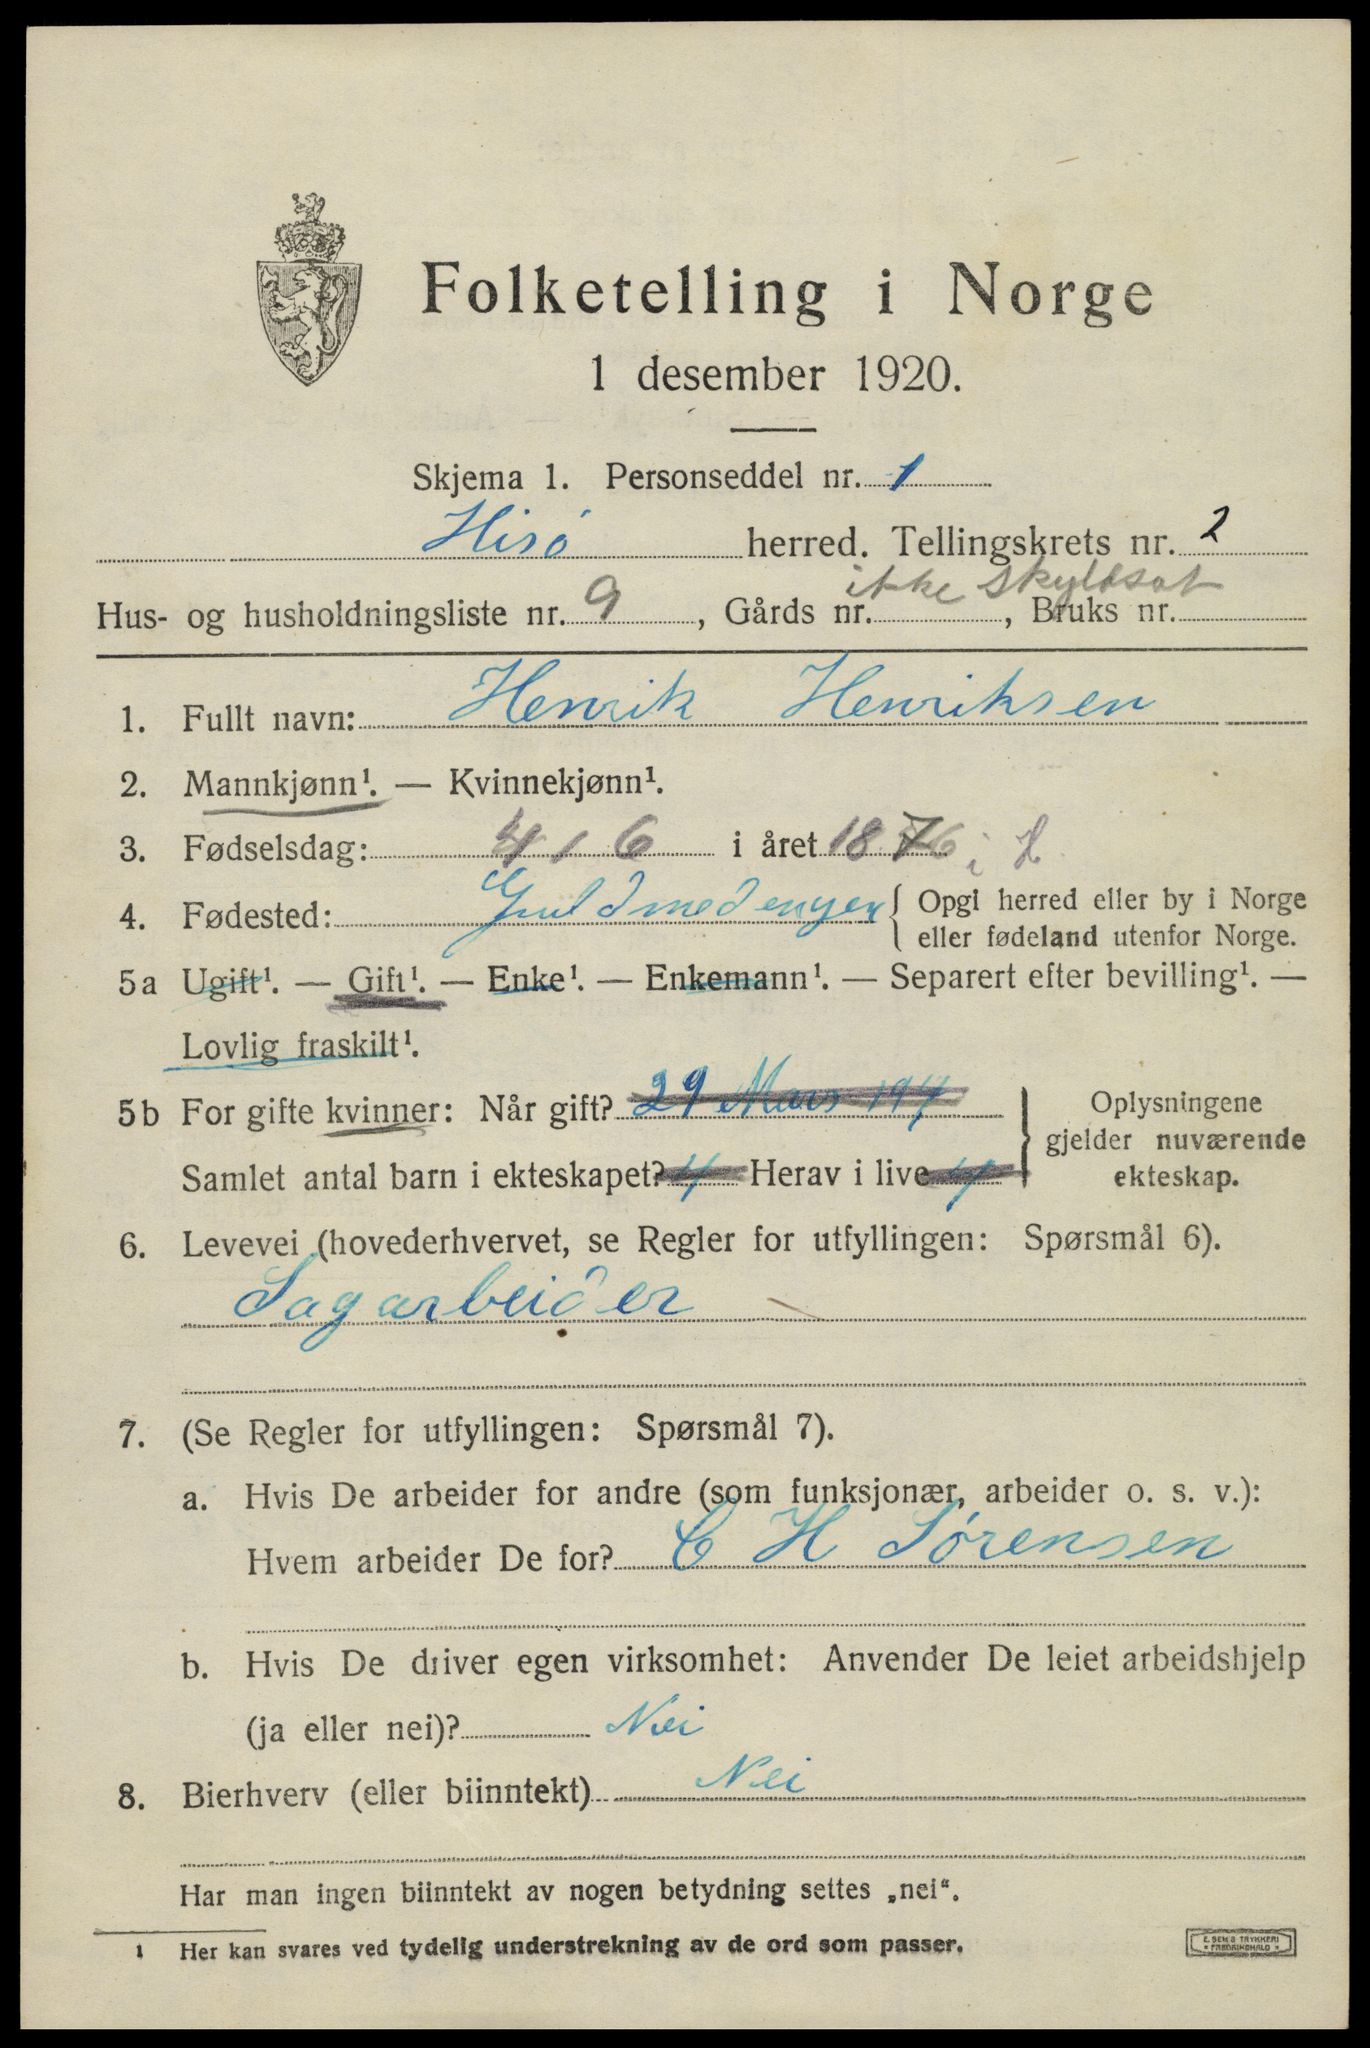 Folketelling i Norge
1 desember 1920.
Skjema 1. Personseddel nr. 1
Hisø herred. Tellingskrets nr. 2
ikke skyldsat
Hus- og husholdningsliste nr. 9, Gårds nr. , Bruks nr.
1. Fullt navn: Henrik Henriksen
2. Mannkjønn¹. — Kvinnekjønn¹.
3. Fødselsdag: 4 / 6 i året 1876 i H
4. Fødested: Guldmedengen { Opgi herred eller by i Norge
eller fødeland utenfor Norge.
5a Ugift¹. — Gift¹. — Enke¹. — Enkemann¹. — Separert efter bevilling¹. —
Lovlig fraskilt¹.
5b For gifte kvinner: Når gift? 29 Mars 197 } Oplysningene
gjelder nuværende
Samlet antal barn i ekteskapet? 4 Herav i live 4 ekteskap.
6. Levevei (hovederhvervet, se Regler for utfyllingen: Spørsmål 6).
Sagarbeider
7. (Se Regler for utfyllingen: Spørsmål 7).
a. Hvis De arbeider for andre (som funksjonær, arbeider o. s. v.):
Hvem arbeider De for? C H Sørensen
b. Hvis De driver egen virksomhet: Anvender De leiet arbeidshjelp
(ja eller nei)? Nei
8. Bierhverv (eller biinntekt) Nei
Har man ingen biinntekt av nogen betydning settes „nei“.
1 Her kan svares ved tydelig understrekning av de ord som passer.
E. SEM'S TRYKKERI
* FREDRIKSHALD *